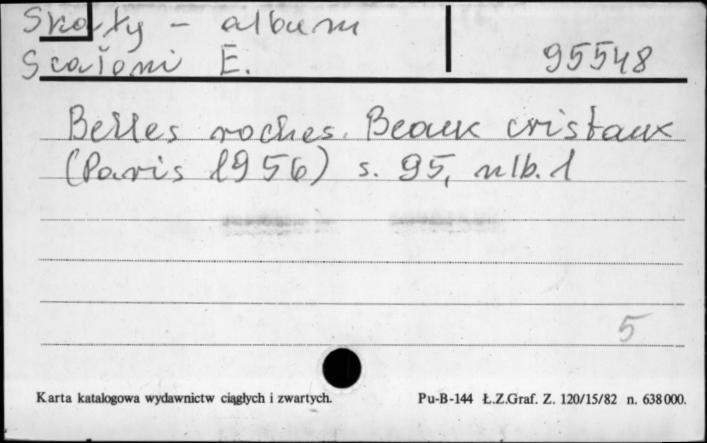 Skały - album
Scaioni E.
95548
Belles roches. Beaux cristaux
(Paris 1956) s. 95, nlb. 1
5
Karta katalogowa wydawnictw ciągłych i zwartych.
Pu-B-144 Ł.Z.Graf. Z. 120/15/82 n. 638 000.